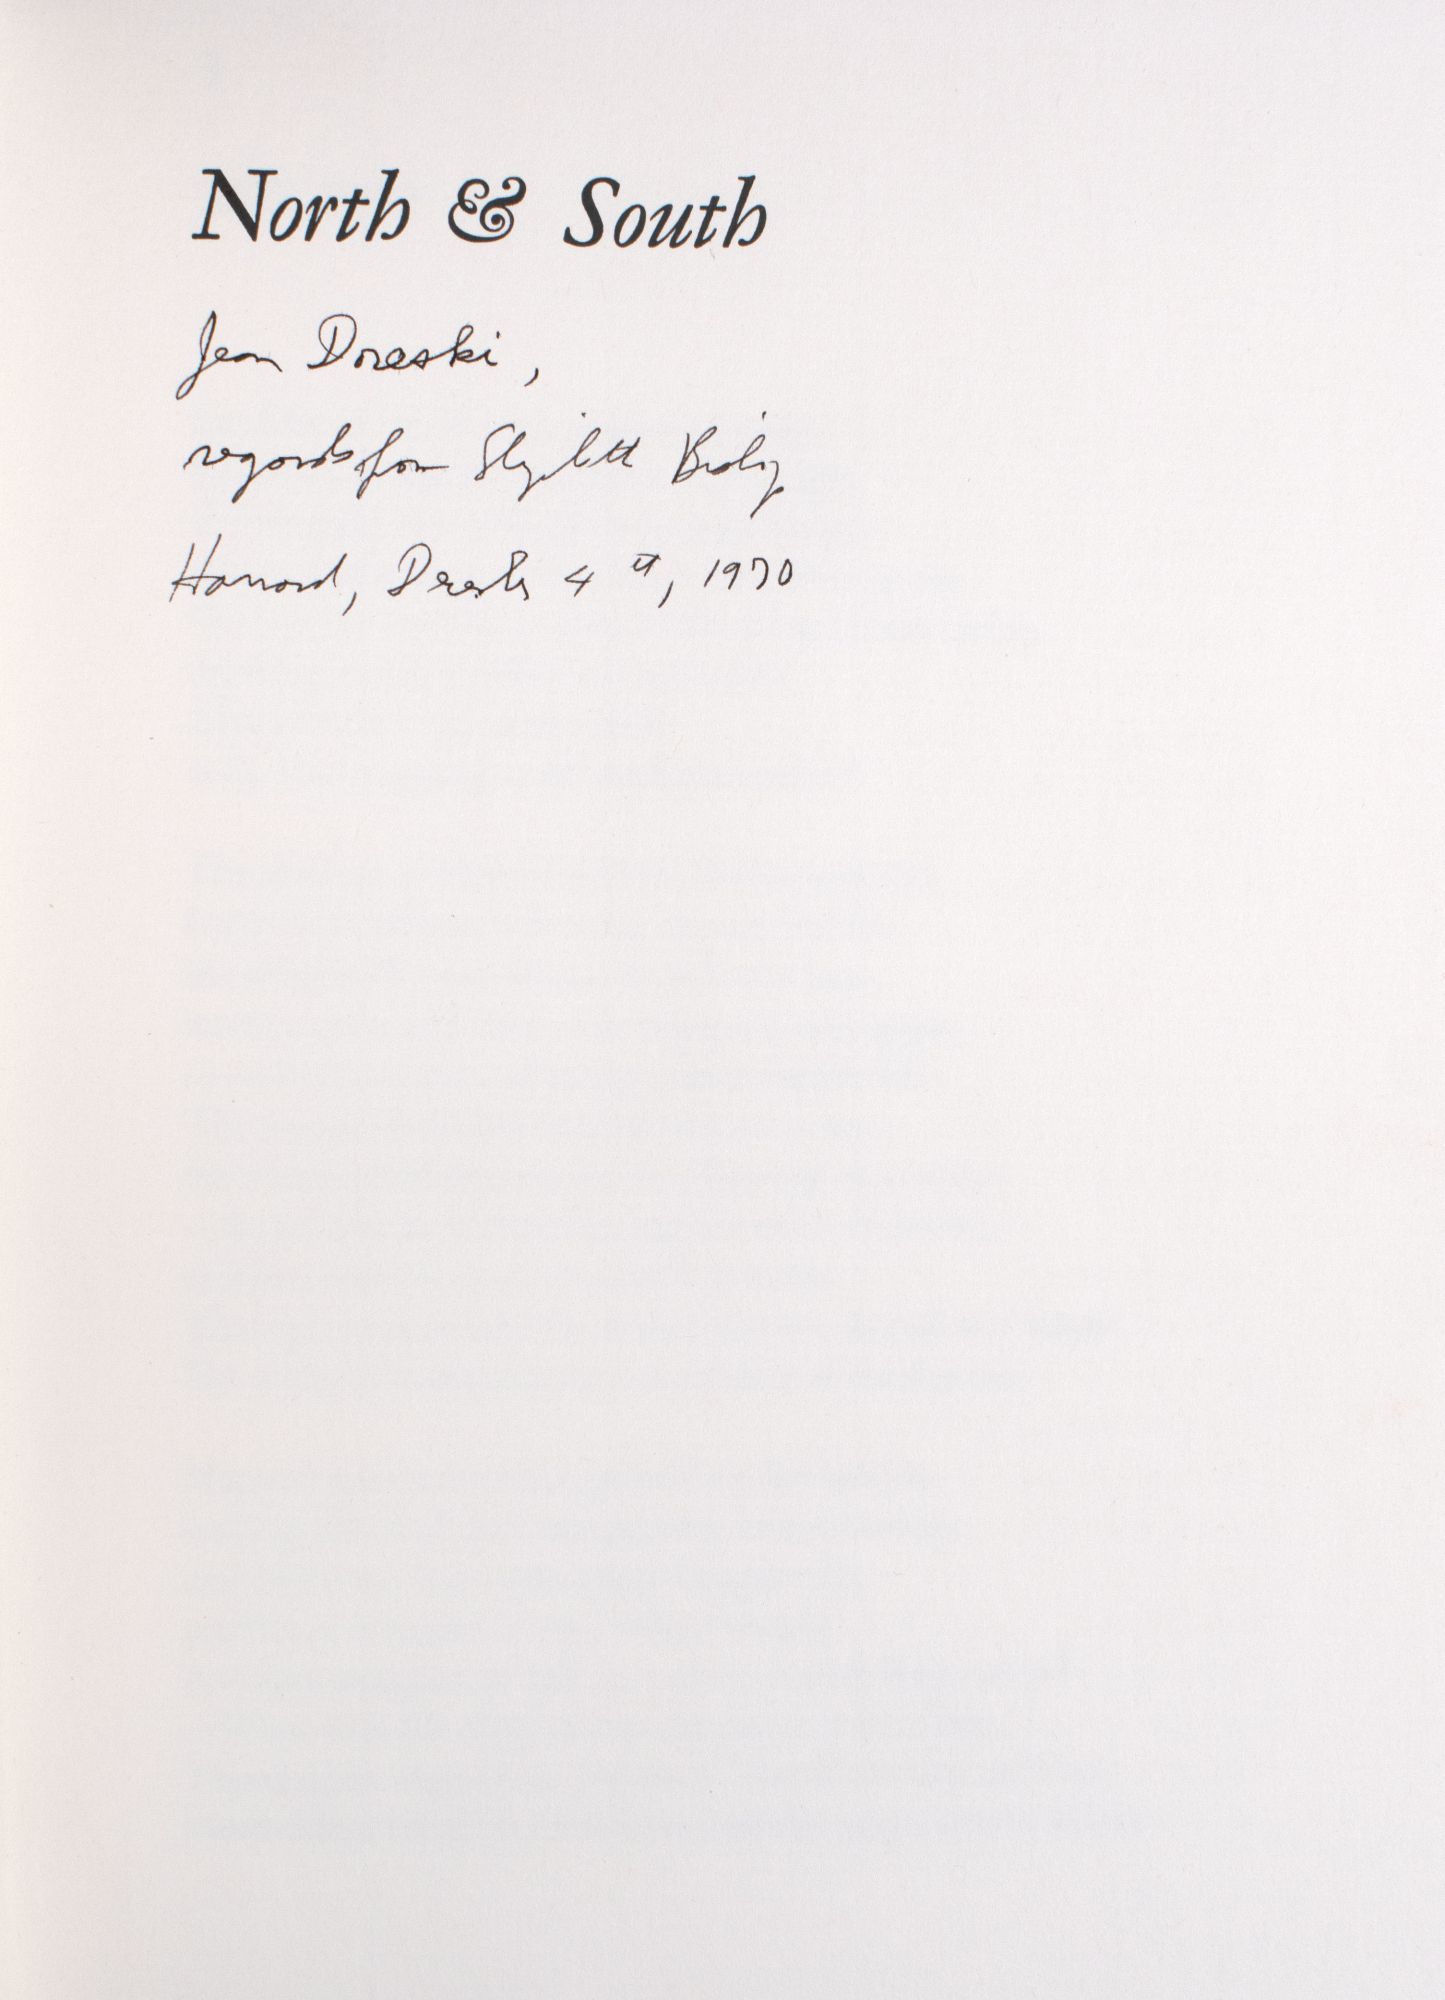 North & South
Jean Doreski,
regards from Elizabeth Bishop
Harvard, December 4th, 1970